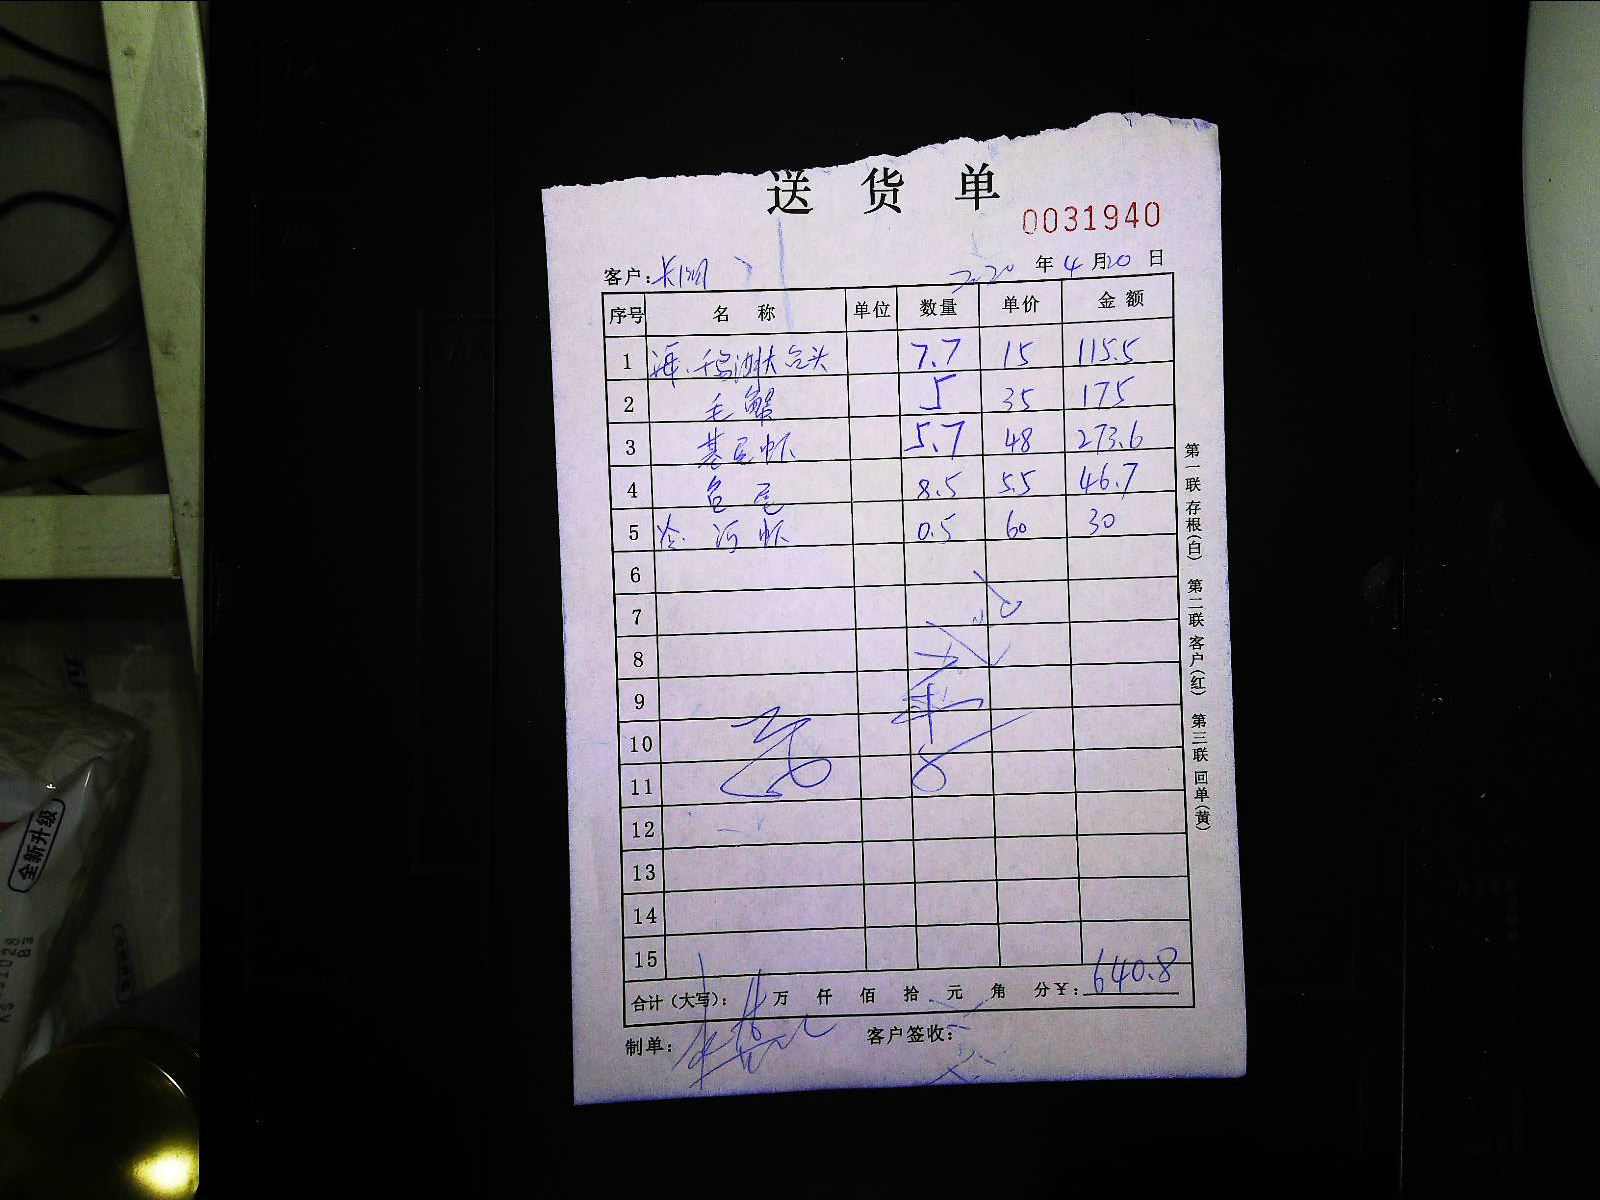 送货单
0031940
客户: 2020年4月20日
序号 名称 单位 数量 单价 金额
1 7.7 15 115.5
2 毛蟹 5 35 175
3 基尾虾 5.7 48 273.6
4 鱼尾 8.5 5.5 46.7
5 河虾 0.5 60 30
6
7
8
9
10
11
12
13
14
15
合计(大写): 万仟佰拾元角分¥: 640.8
制单: 客户签收:
第一联存根(白) 第二联客户(红) 第三联回单(黄)
全新升级